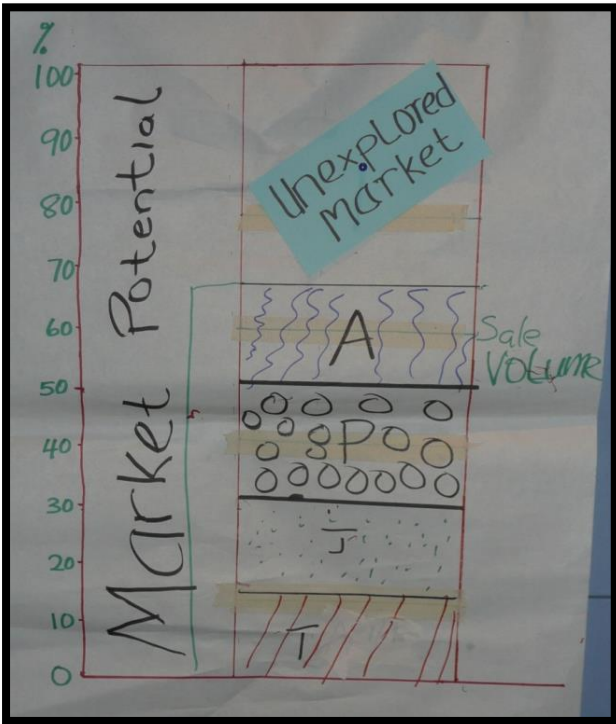 %
100
90
80
70
60
50
40
30
20
10
0
Market Potential
Unexplored
Market
A
Sale
Volume
P
J
T